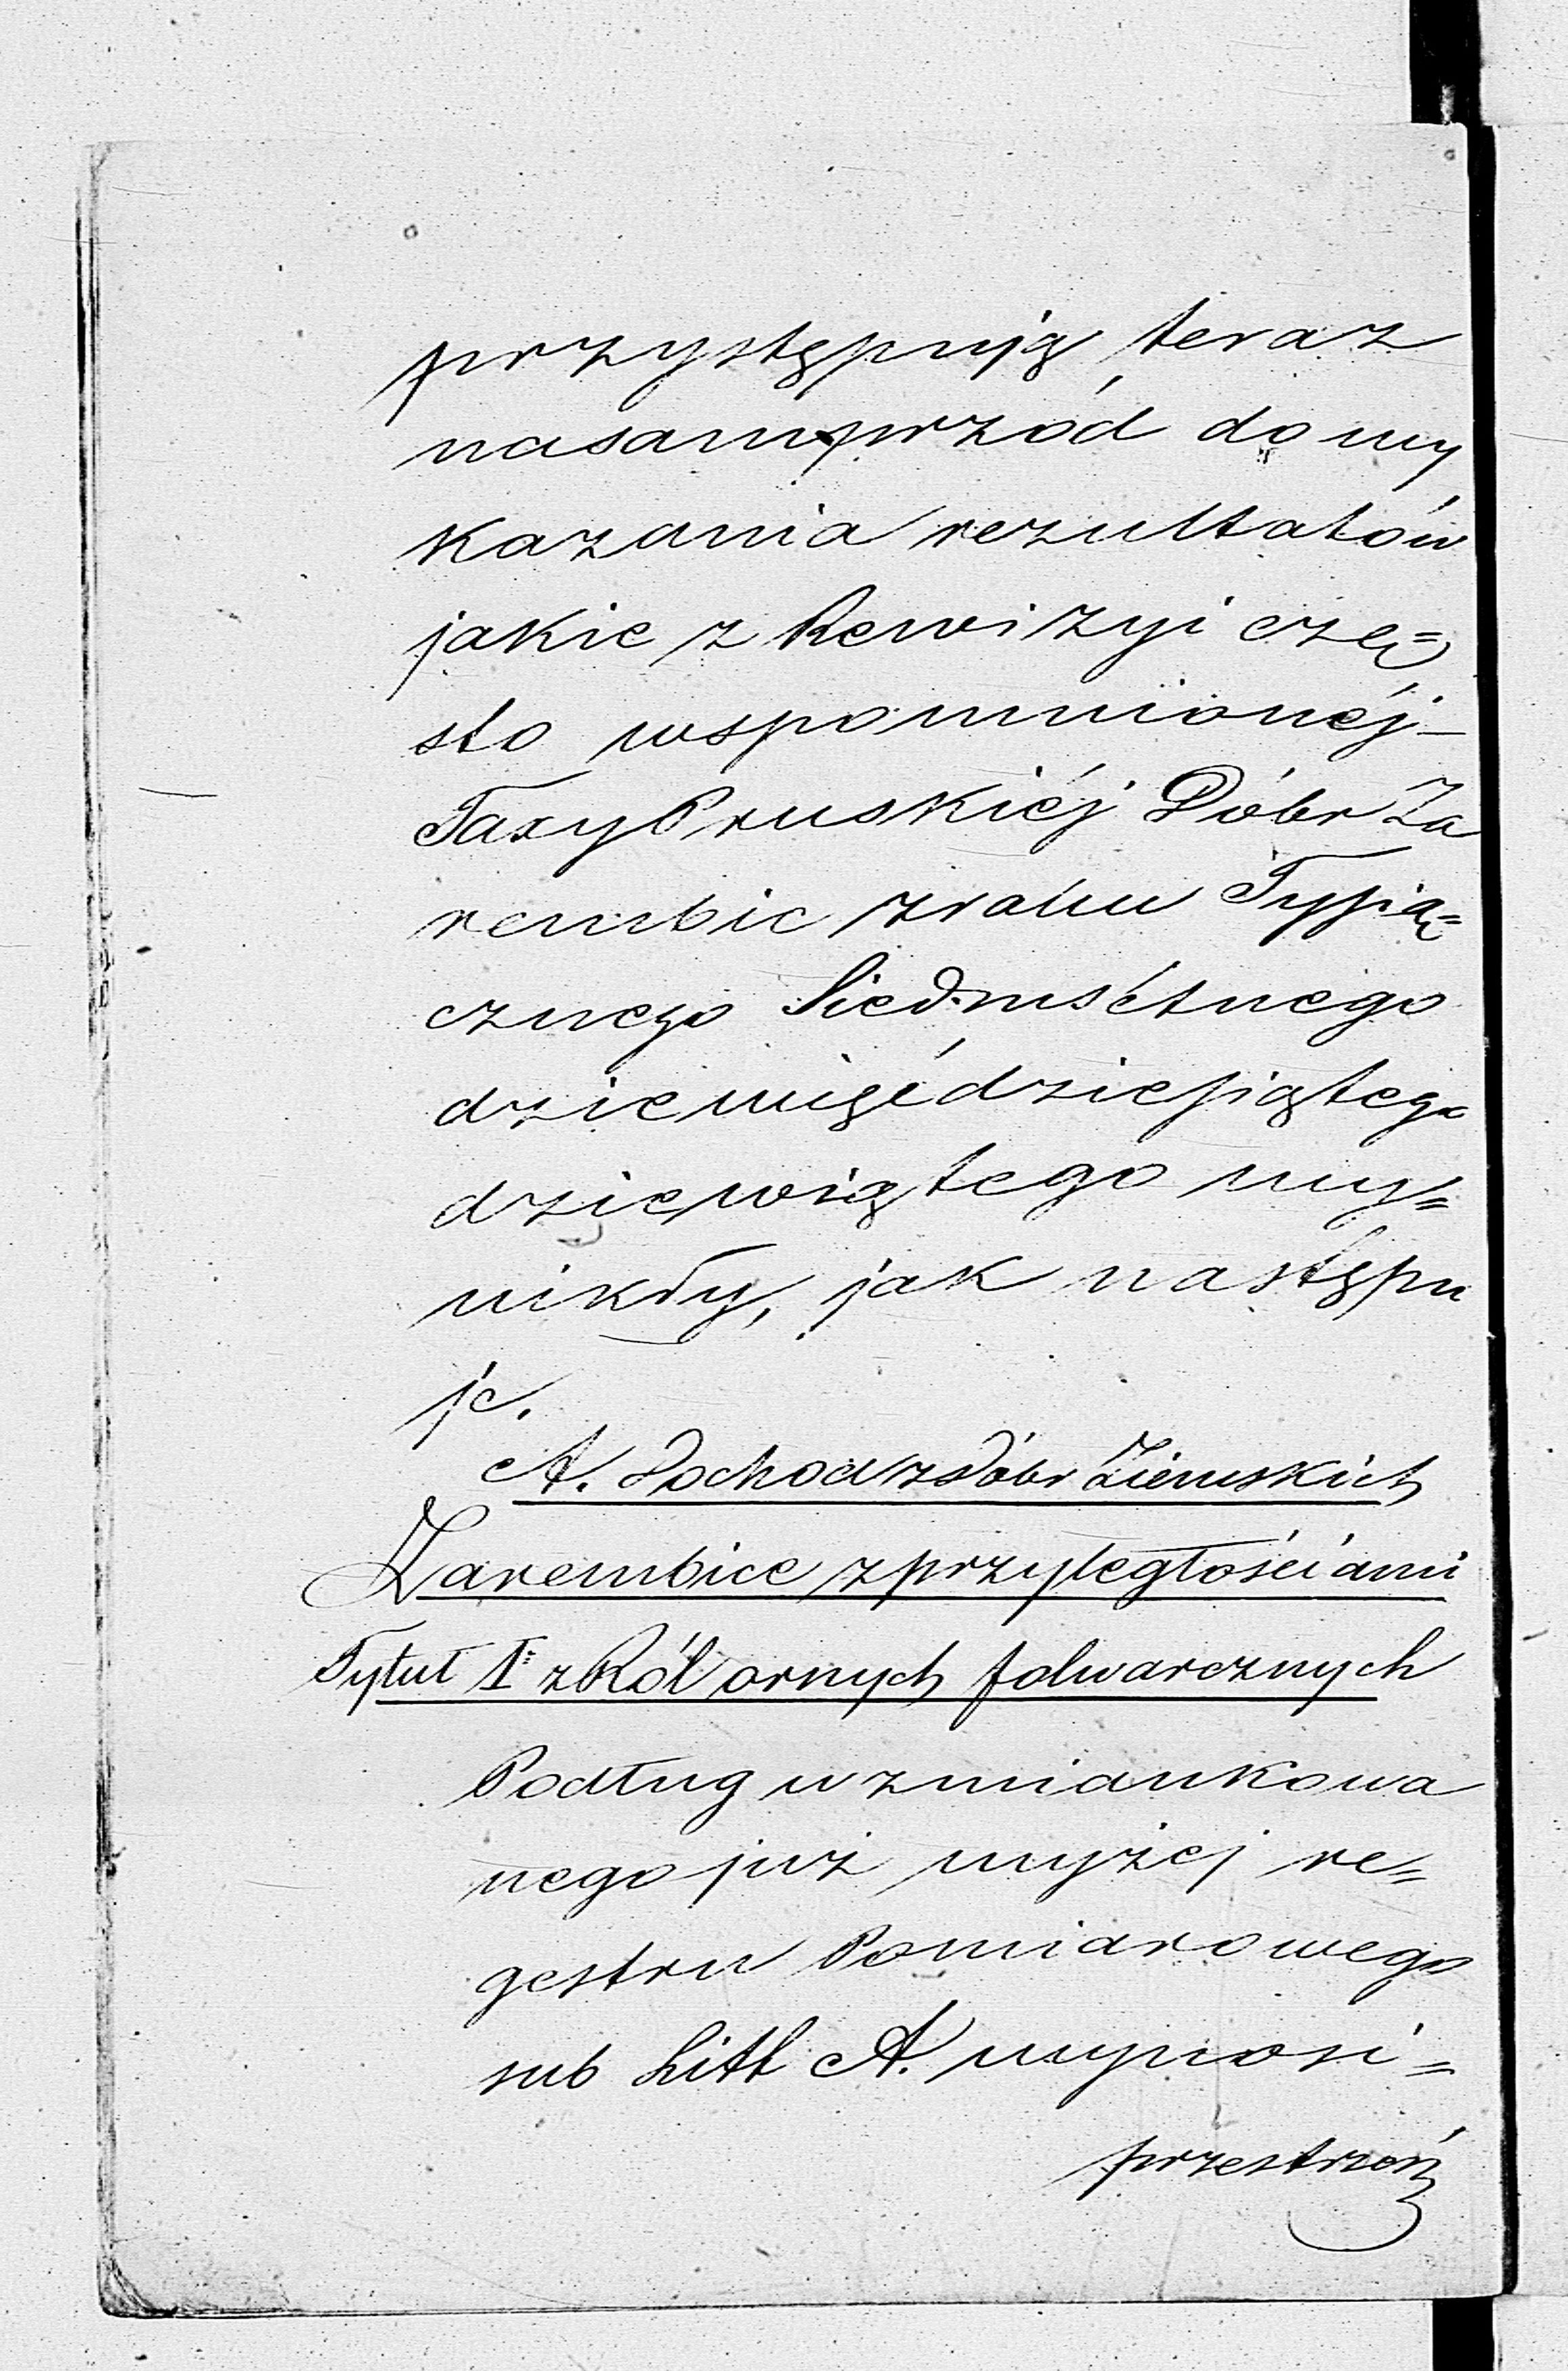 przystępują teraz
nasamprzód do wy
kazania rezultatów
jakie z Rewizyi czę=
sto wspomnionéj
Taxy Pruskiéj Dóbr Za
rembic z roku Tysią=
cznego Siedmsétnego
dziewięćdziesiątego
dziewiątego wy=
nikły, jak następu
je.
A. Dochod z Dóbr Ziemskich
Zarembice z przyległościami
Tytuł I. z Ról ornych folwarcznych
Podług wzmiankowa
nego już wyżej re=
gestru Pomiarowego
sub Litt A. wynosi =
przestrzeń